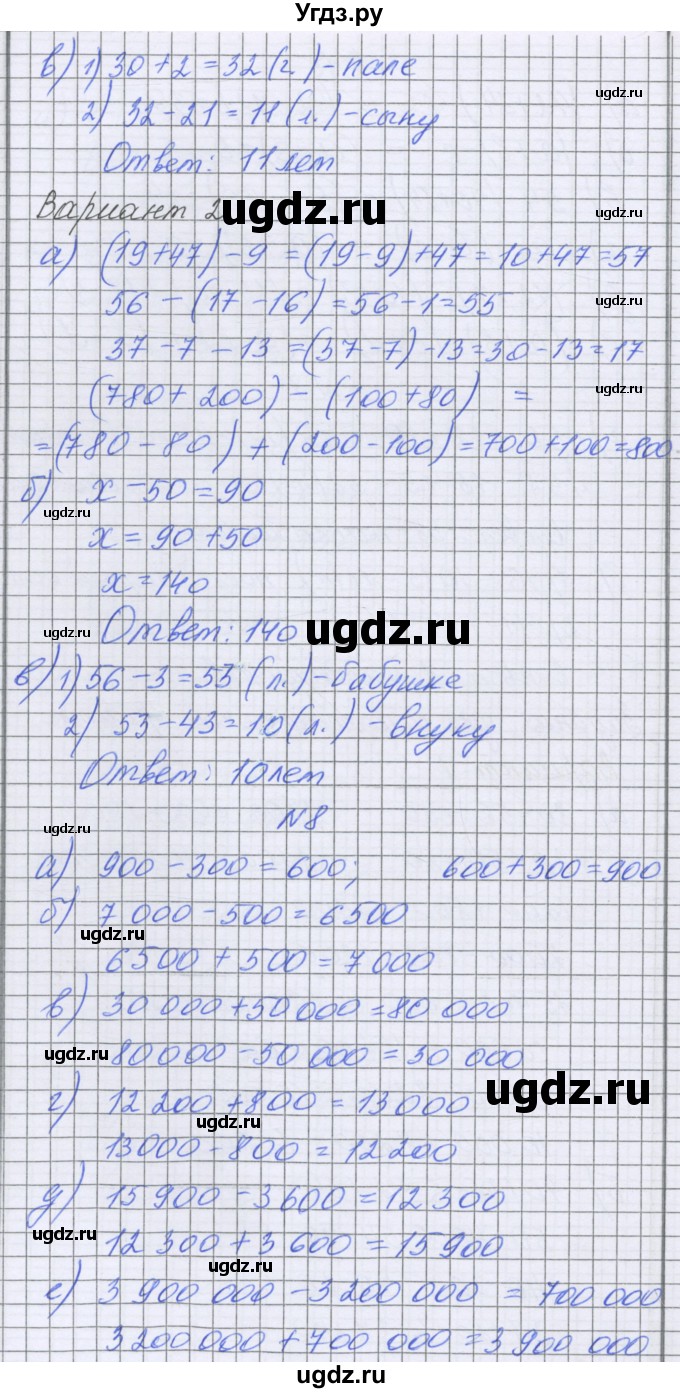 Угдз.ру
в) 1) 30 + 2 = 32 (г.) - папе
ugdz.ru
2) 32 - 21 = 11 (л.) - сыну
Ответ: 11 лет
ugdz.ru
Вариант 2
ugdz.ru
а) (19 + 47) - 9 = (19 - 9) + 47 = 10 + 47 = 57
56 - (17 - 16) = 56 - 1 = 55
ugdz.ru
37 - 7 - 13 = (37 - 7) - 13 = 30 - 13 = 17
(780 + 200) - (100 + 80) =
ugdz.ru
= (780 - 80) + (200 - 100) = 700 + 100 = 800
б) x - 50 = 90
ugdz.ru
x = 90 + 50
x = 140
Ответ: 140
ugdz.ru
в) 1) 56 - 3 = 53 (л.) - бабушке
2) 53 - 43 = 10 (л.) - внуку
Ответ: 10 лет
N8
ugdz.ru
а) 900 - 300 = 600; 600 + 300 = 900
б) 7 000 - 500 = 6500
ugdz.ru
6500 + 500 = 7000
в) 30 000 + 50 000 = 80 000
ugdz.ru
80000 - 50 000 = 30 000
ugdz.ru
г) 12 200 + 800 = 13000
ugdz.ru
13000 - 800 = 12 200
д) 15 900 - 3 600 = 12 300
ugdz.ru
12 300 + 3 600 = 15 900
ugdz.ru
е) 3 900 000 - 3 200 000 = 700 000
3 200 000 + 700 000 = 3 900 000
ugdz.ru
ugdz.ru